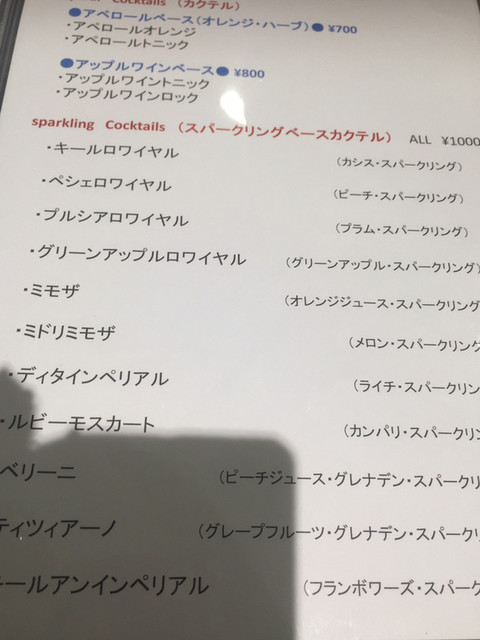 Cocktails （カクテル）
●アペロールベース（オレンジ・ハーブ）● ¥700
・アペロールオレンジ
・アペロールトニック
●アップルワインベース● ¥800
・アップルワイントニック
・アップルワインロック
sparkling Cocktails （スパークリングベースカクテル） ALL ¥1000
・キールロワイヤル （カシス・スパークリング）
・ペシェロワイヤル （ピーチ・スパークリング）
・プルシアロワイヤル （プラム・スパークリング）
・グリーンアップルロワイヤル （グリーンアップル・スパークリング）
・ミモザ （オレンジジュース・スパークリング
・ミドリミモザ （メロン・スパークリング
・ディタインペリアル （ライチ・スパークリン
・ルビーモスカート （カンパリ・スパークリン
ベリーニ （ピーチジュース・グレナデン・スパークリ
ティツィアーノ （グレープフルーツ・グレナデン・スパークリ
キールアンインペリアル （フランボワーズ・スパーク